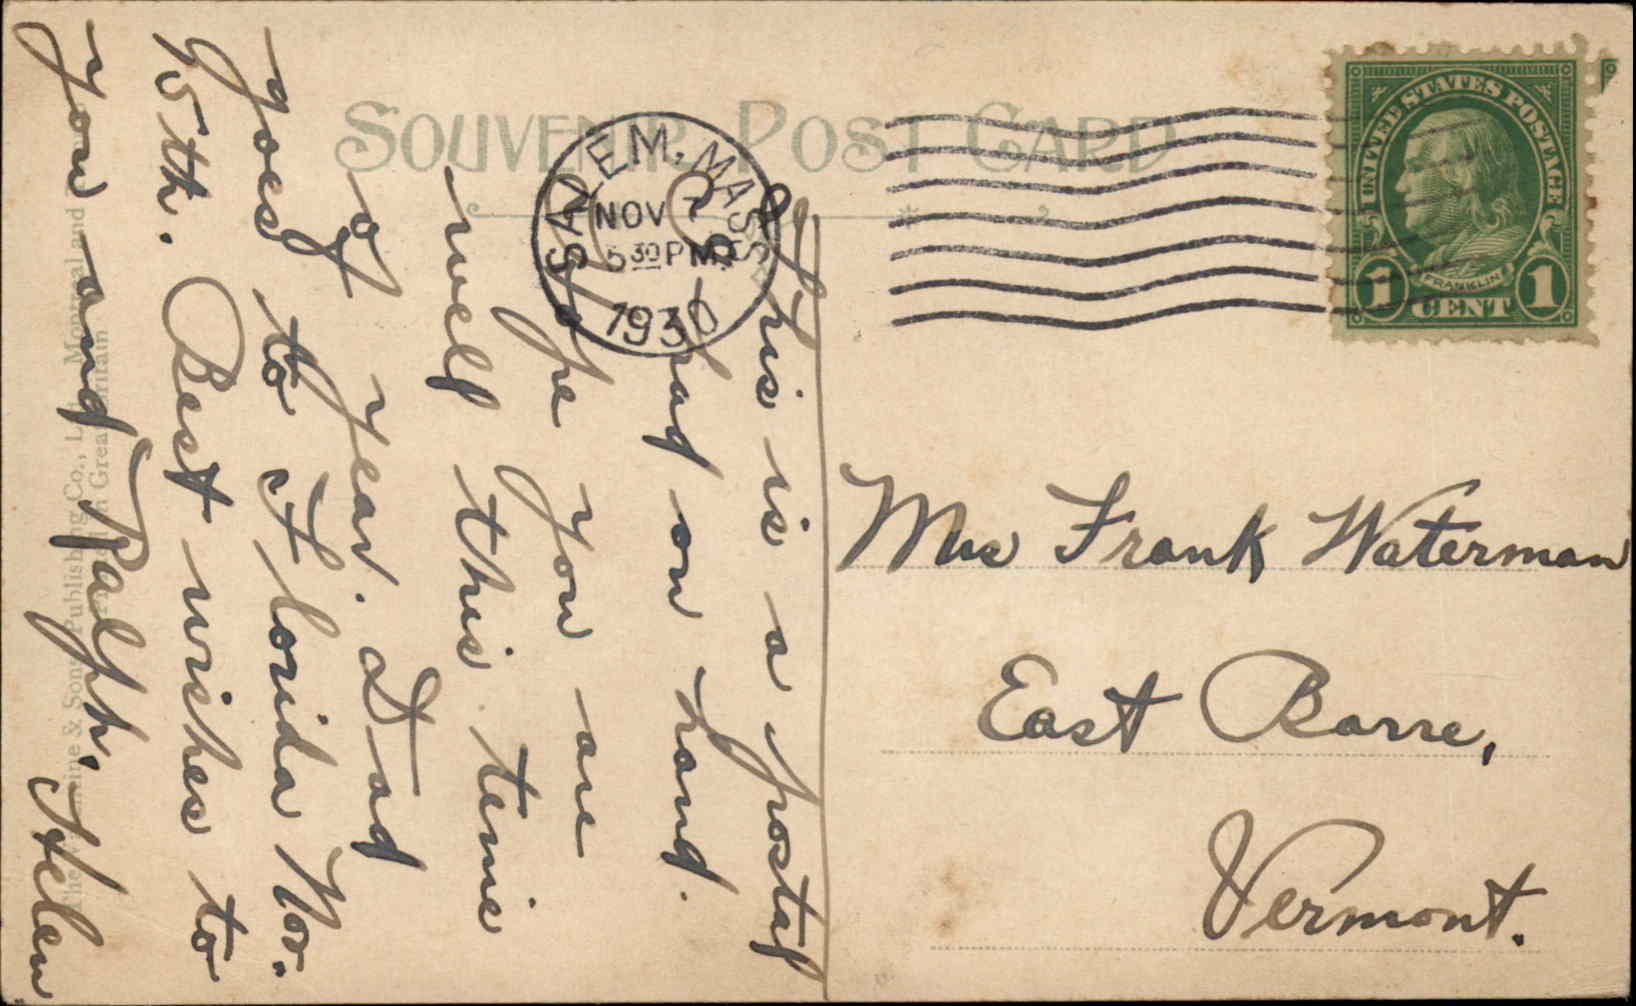 SOUVENIR POST CARD
SALEM, MASS.
NOV
5 30 PM
1930
UNITED STATES POSTAGE
FRANKLIN
1 CENT 1
This is a postal
I had on hand.
Hope you are
well this time
of year. Dad
goes to Florida Nov.
15th. Best wishes to
you and Ralph. Helen
Mrs Frank Waterman
East Barre,
Vermont.
& Sons Publishing Co., Montreal and
Great Britain